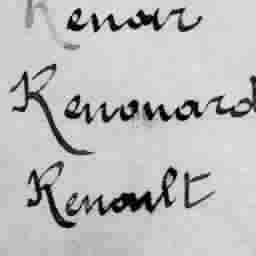 Renoir
Renouard
Renault